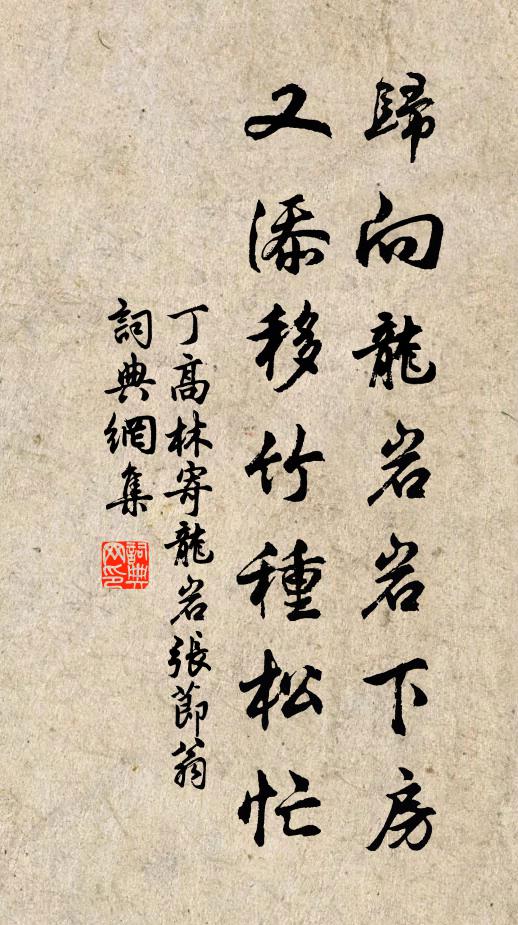 歸向龍岩岩下房
又添移竹種松忙
丁高林寄龍岩張節翁
詞典網集
詞典網印